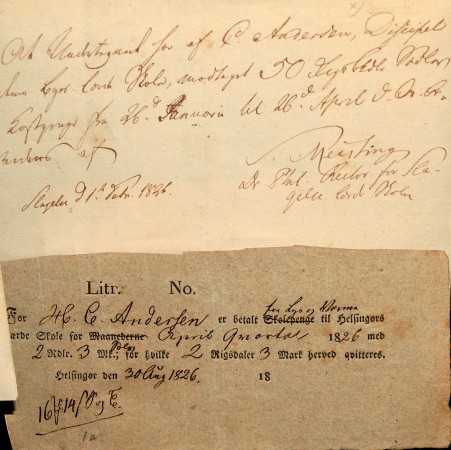 At Undertegnet har af C Andersen, Discipel
lærde Skole, modtaget 50 Rigsbdlr Sedler
Kostpenge fra 26d Januarii til 26d April d. A. be-
af
Meisling
Slagelse, d 1ste Febr. 1826.
Dr Phil. Rector for Sla-
gelse lærde Skole
Litr. No.
For H. C. Andersen er betalt Skolepenge for Lys og Varme til Helsingørs
lærde Skole for Maanederne April Qvartal 1826 med
2 Rdlr. 3 Mk.; Sølv for hvilke 2 Rigsdaler 3 Mark herved qvitteres.
Helsingør den 30 Aug 1826. 18
1a